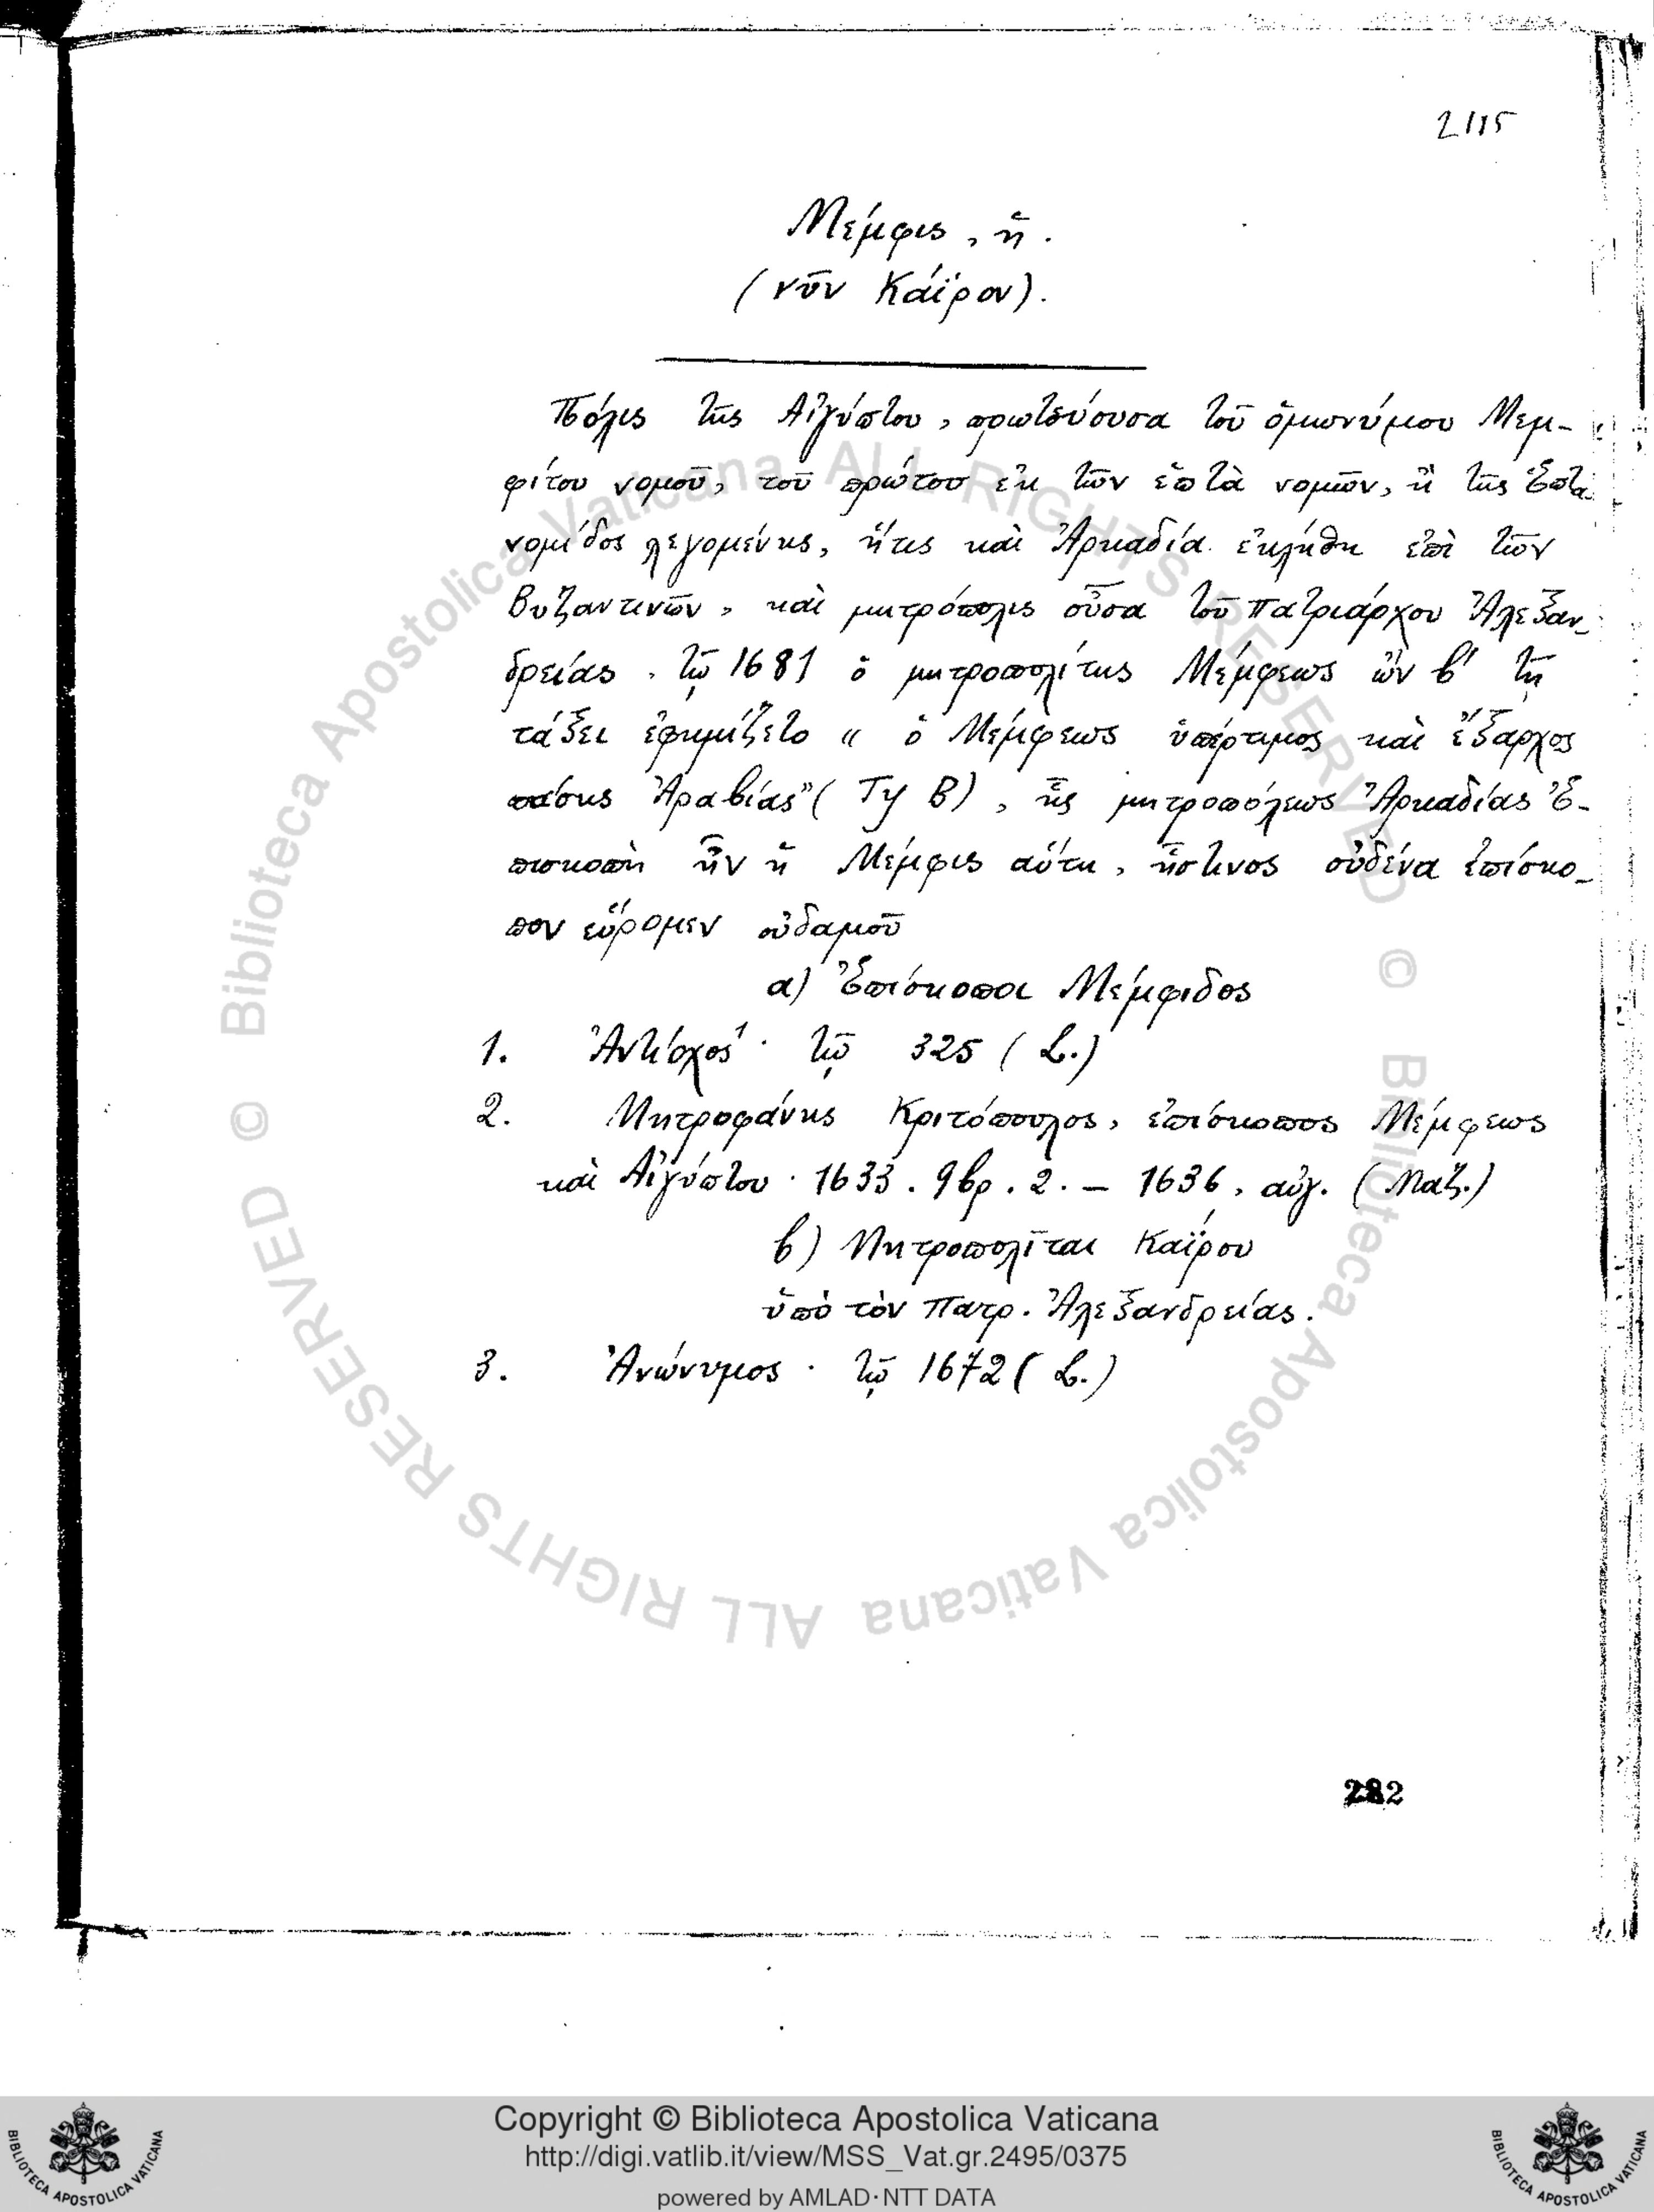 2115
Μέμφις, ἡ.
(νῦν Κάϊρον).
Πόλις τῆς Αἰγύπτου, πρωτεύουσα τοῦ ὁμωνύμου Μεμ-
φίτου νομοῦ, τοῦ πρώτου ἐκ τῶν ἑπτὰ νομῶν, ἢ τῆς Ἑπτα
νομίδος λεγομένης, ἥτις καὶ Ἀρκαδία ἐκλήθη ἐπὶ τῶν
Βυζαντινῶν, καὶ μητρόπολις οὖσα τοῦ Πατριάρχου Ἀλεξαν-
δρείας. τῷ 1681 ὁ μητροπολίτης Μέμφεως ὢν β' τῇ
τάξει ἐφημίζετο « ὁ Μέμφεως ὑπέρτιμος καὶ ἔξαρχος
πάσης Ἀραβίας" (Τγ Β), ἧς μητροπόλεως Ἀρκαδίας Ἐ-
πισκοπὴ ἦν ἡ Μέμφις αὕτη, ἧστινος οὐδένα ἐπίσκο-
πον εὕρομεν οὐδαμοῦ
α) Ἐπίσκοποι Μέμφιδος
1. Ἀντίοχος · τῷ 325 (L.)
2. Μητροφάνης Κριτόπουλος, ἐπίσκοπος Μέμφεως
καὶ Αἰγύπτου · 1633. 9βρ. 2. – 1636, αὐγ. (Μαζ.)
β) Μητροπολῖται Καΐρου
ὑπὸ τὸν Πατρ. Ἀλεξανδρείας.
3. Ἀνώνυμος · τῷ 1672 (L.)
282
© Biblioteca Apostolica Vaticana ALL RIGHTS RESERVED © Biblioteca Apostolica Vaticana ALL RIGHTS RESERVED
Copyright © Biblioteca Apostolica Vaticana
http://digi.vatlib.it/view/MSS_Vat.gr.2495/0375
powered by AMLAD·NTT DATA
BIBLIOTECA APOSTOLICA VATICANA
BIBLIOTECA APOSTOLICA VATICANA